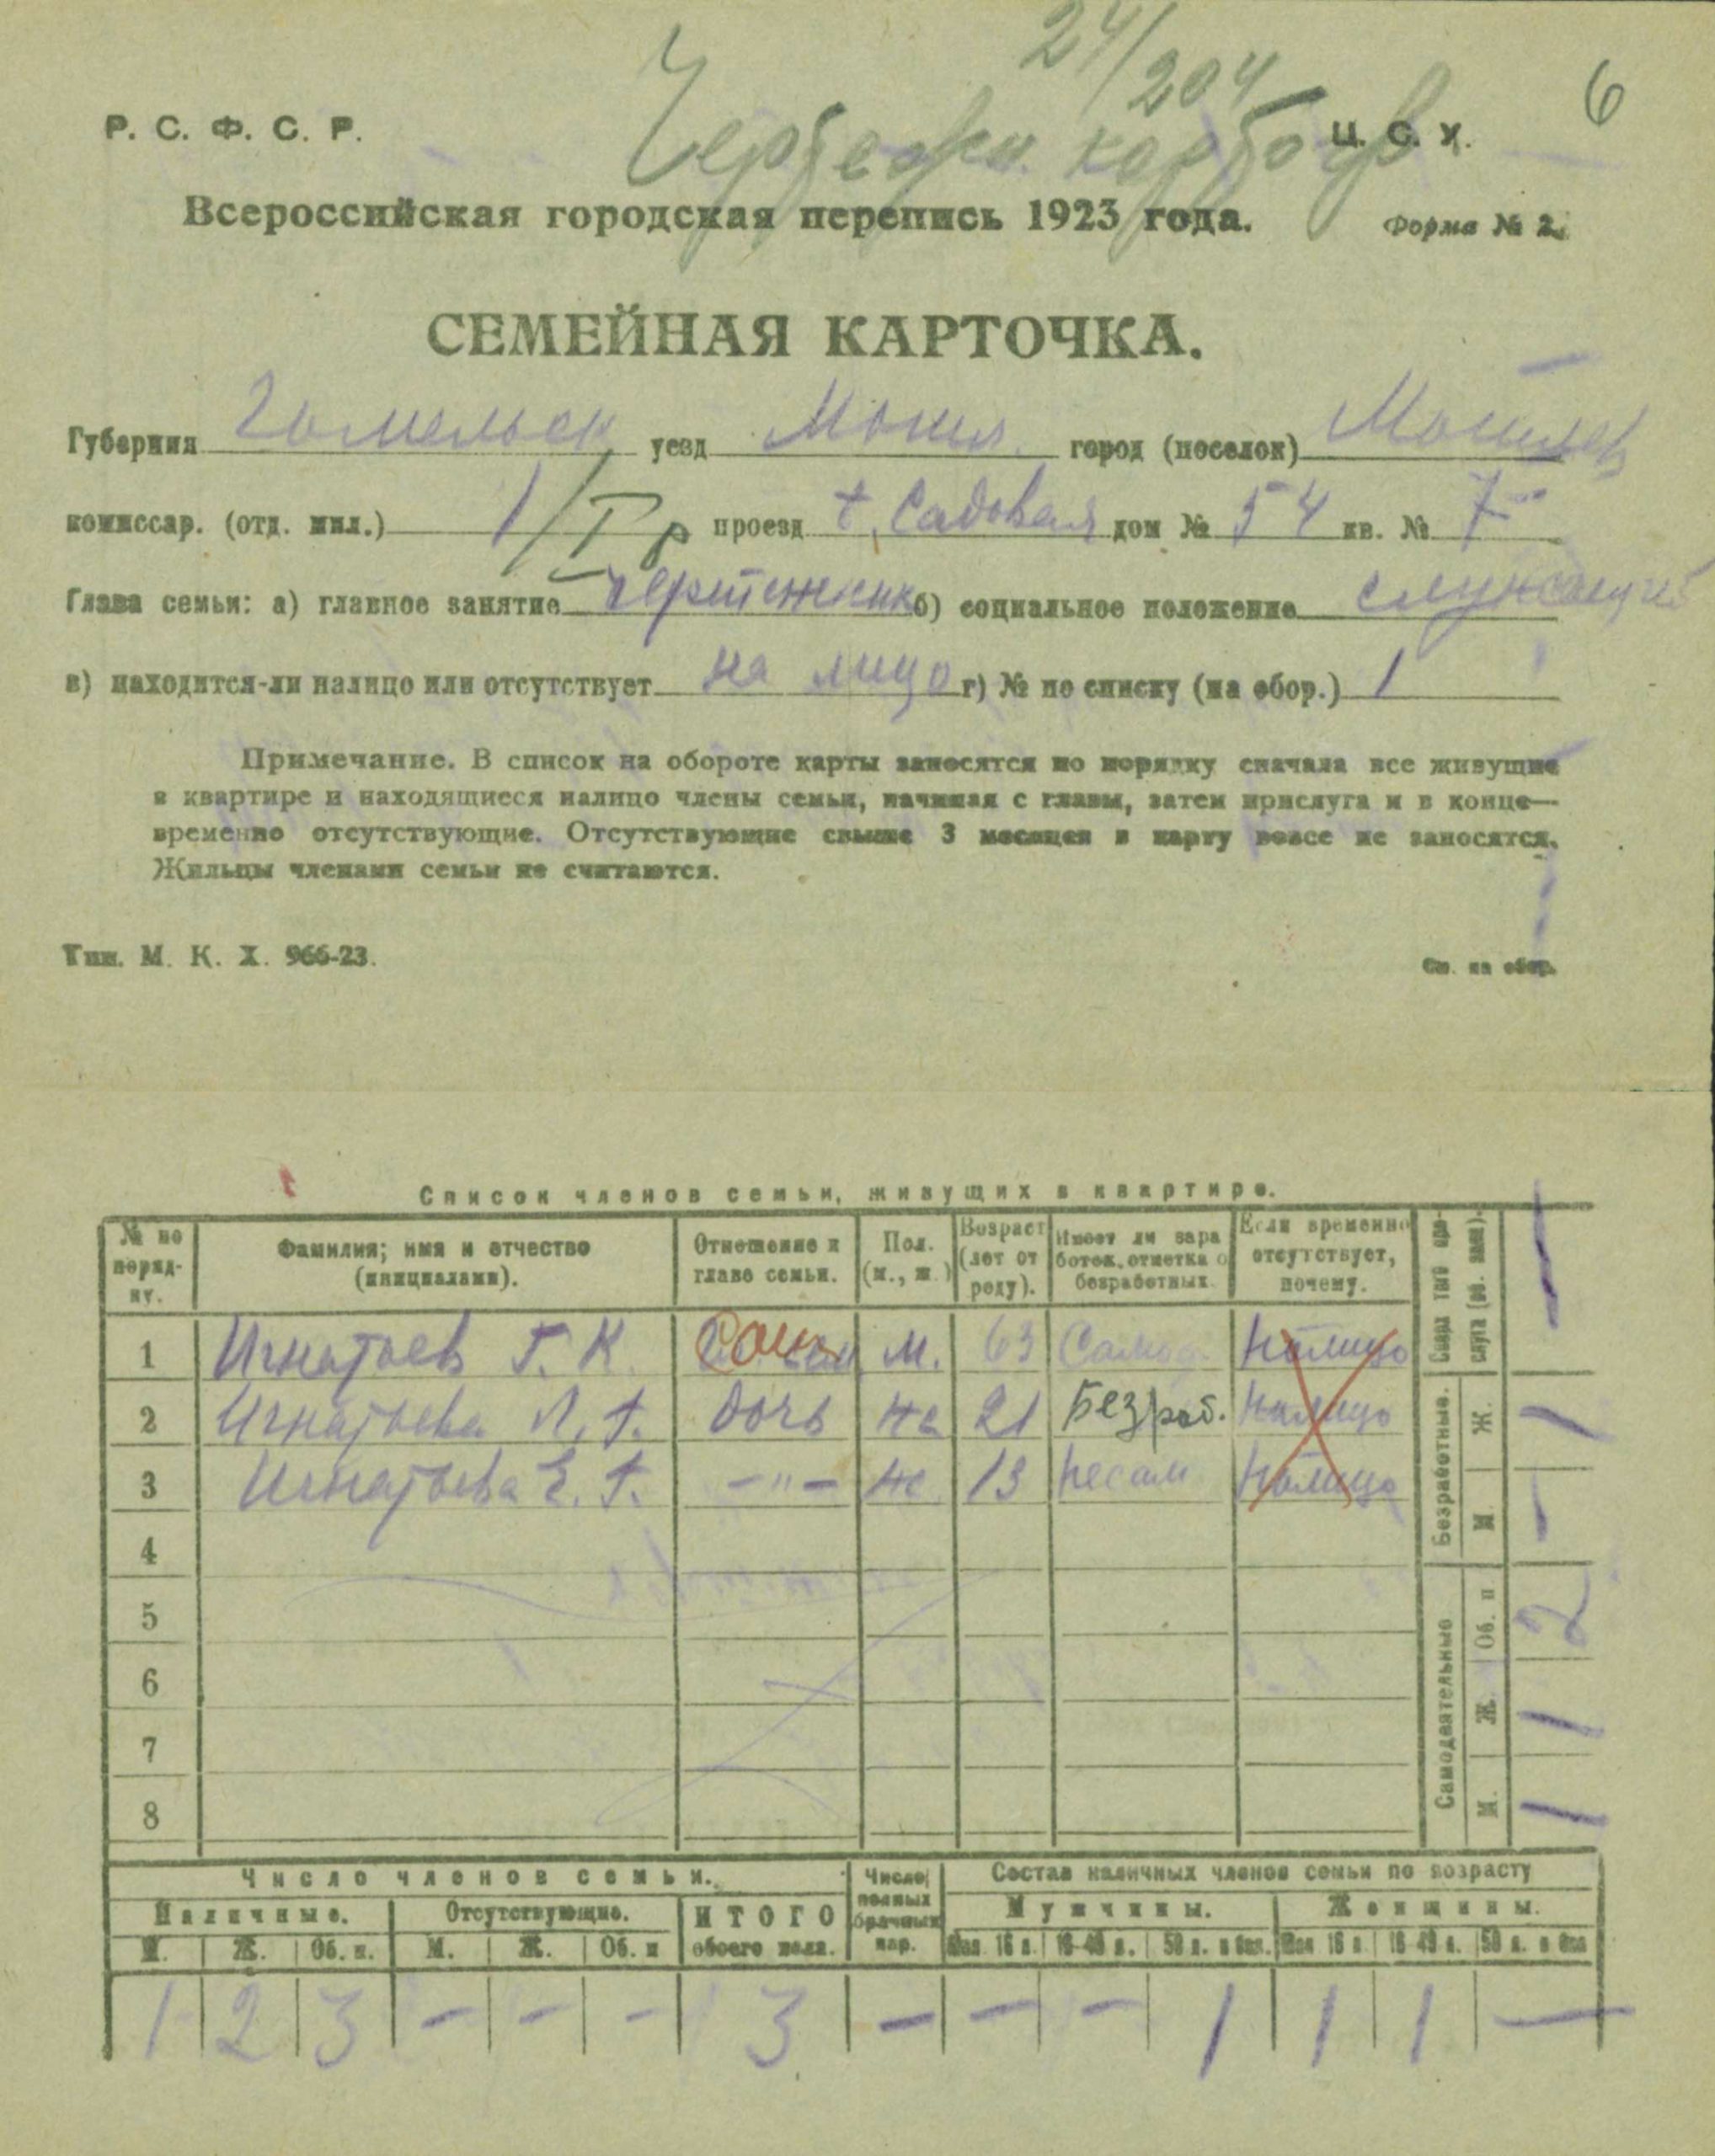 24/204
6
Р. С. Ф. С. Р.
Ц. С. У.
Всероссийская городская перепись 1923 года.
Форма № 2.
СЕМЕЙНАЯ КАРТОЧКА.
Губерния Гомельск уезд Могил. город (поселок) Могилев
комиссар. (отд. мил.) 1/I р проезд Садовая дом № 54 кв. № 7
Глава семьи: а) главное занятие чертежник б) социальное положение служащий
в) находится-ли налицо или отсутствует на лицо г) № по списку (на обор.) 1
Примечание. В список на обороте карты заносятся по порядку сначала все живущие
в квартире и находящиеся налицо члены семьи, начиная с главы, затем прислуга и в конце—
временно отсутствующие. Отсутствующие свыше 3 месяцев в карту вовсе не заносятся.
Жильцы членами семьи не считаются.
Тип. М. К. Х. 966-23.
См. на обор.
Список членов семьи, живущих в квартире.
№ по поряд- ку.
Фамилия; имя и отчество (инициалами).
Отношение к главе семьи.
Пол. (м., ж.)
Возраст (лет от роду).
Имеет ли зара боток, отметка о безработных.
Если временно отсутствует, почему.
1 Игнатьев Г. К. Сам М. 63 Самод Налицо
2 Игнатьева Л. Г. Дочь Ж 21 Безраб. Налицо
3 Игнатьева Е. Г. –"– Ж. 13 Несам Налицо
4
5
6
7
8
слуга
–
Безработные.
Ж. 1
М. –
Самодеятельные
Об. п 2
Ж. 1
М. 1
Число членов семьи.
Число полных брачных пар.
Состав наличных членов семьи по возрасту
Наличные. Отсутствующие. ИТОГО обоего пола. Мужчины. Женщины.
М. Ж. Об. п. М. Ж. Об. п Мол 16 л. 16-49 л. 50 л. и бол. Мол 16 л 16 49 л. 50 л. и бол
1 2 3 – – – 3 – – – 1 1 1 —